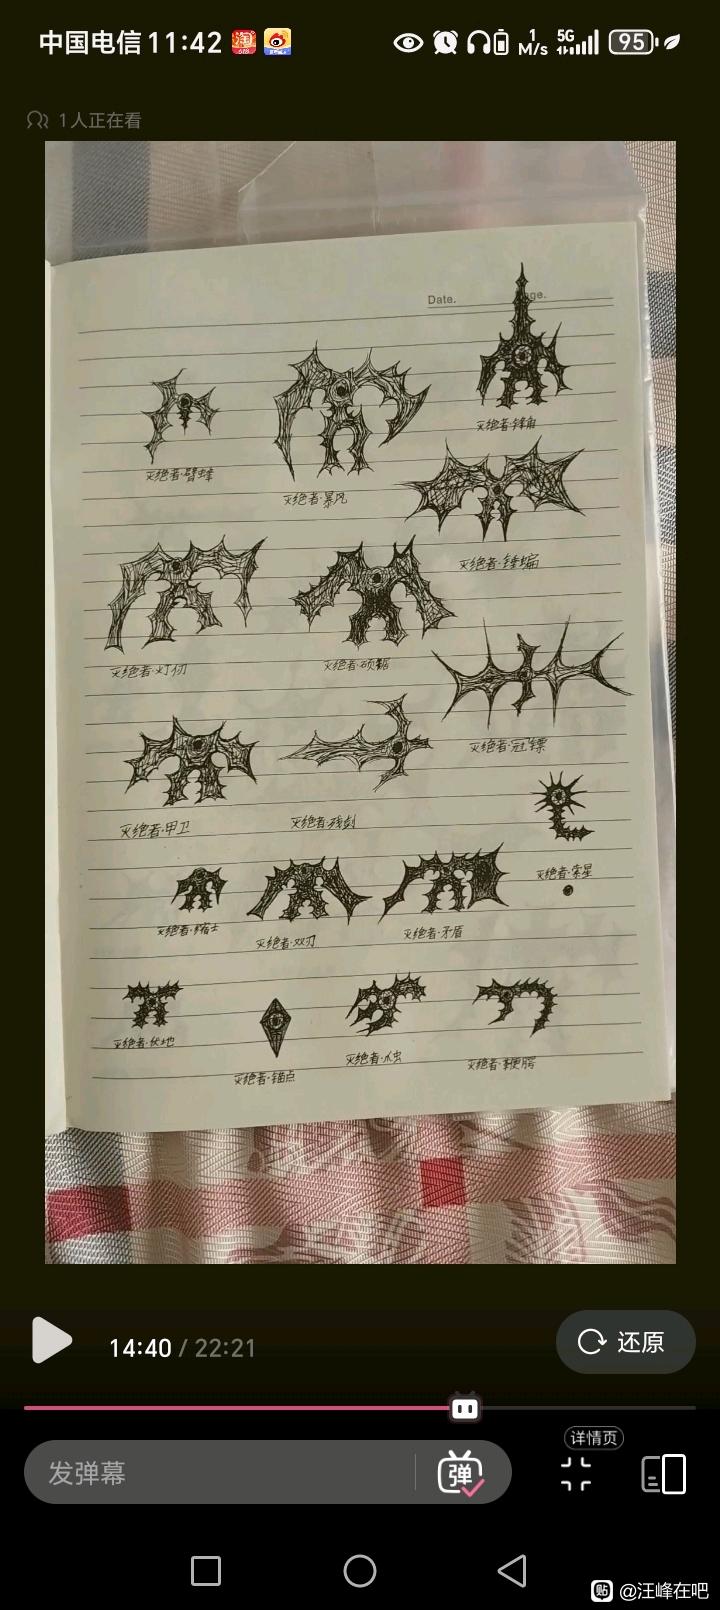 中国电信 11:42
淘
618
1
M/s
5G
95
1人正在看
Date.
ge.
灭绝者·臂蜂
灭绝者·暴风
灭绝者·锋角
灭绝者·锋蝙
灭绝者·灯仞
灭绝者·硕鬍
灭绝者·冠镖
灭绝者·甲卫
灭绝者·残剑
灭绝者·索星
灭绝者·
灭绝者·双刃
灭绝者·矛盾
灭绝者·伏地
灭绝者·锚点
灭绝者·
灭绝者·鞭腭
14:40 / 22:21
还原
详情页
发弹幕
弹
贴 @汪峰在吧